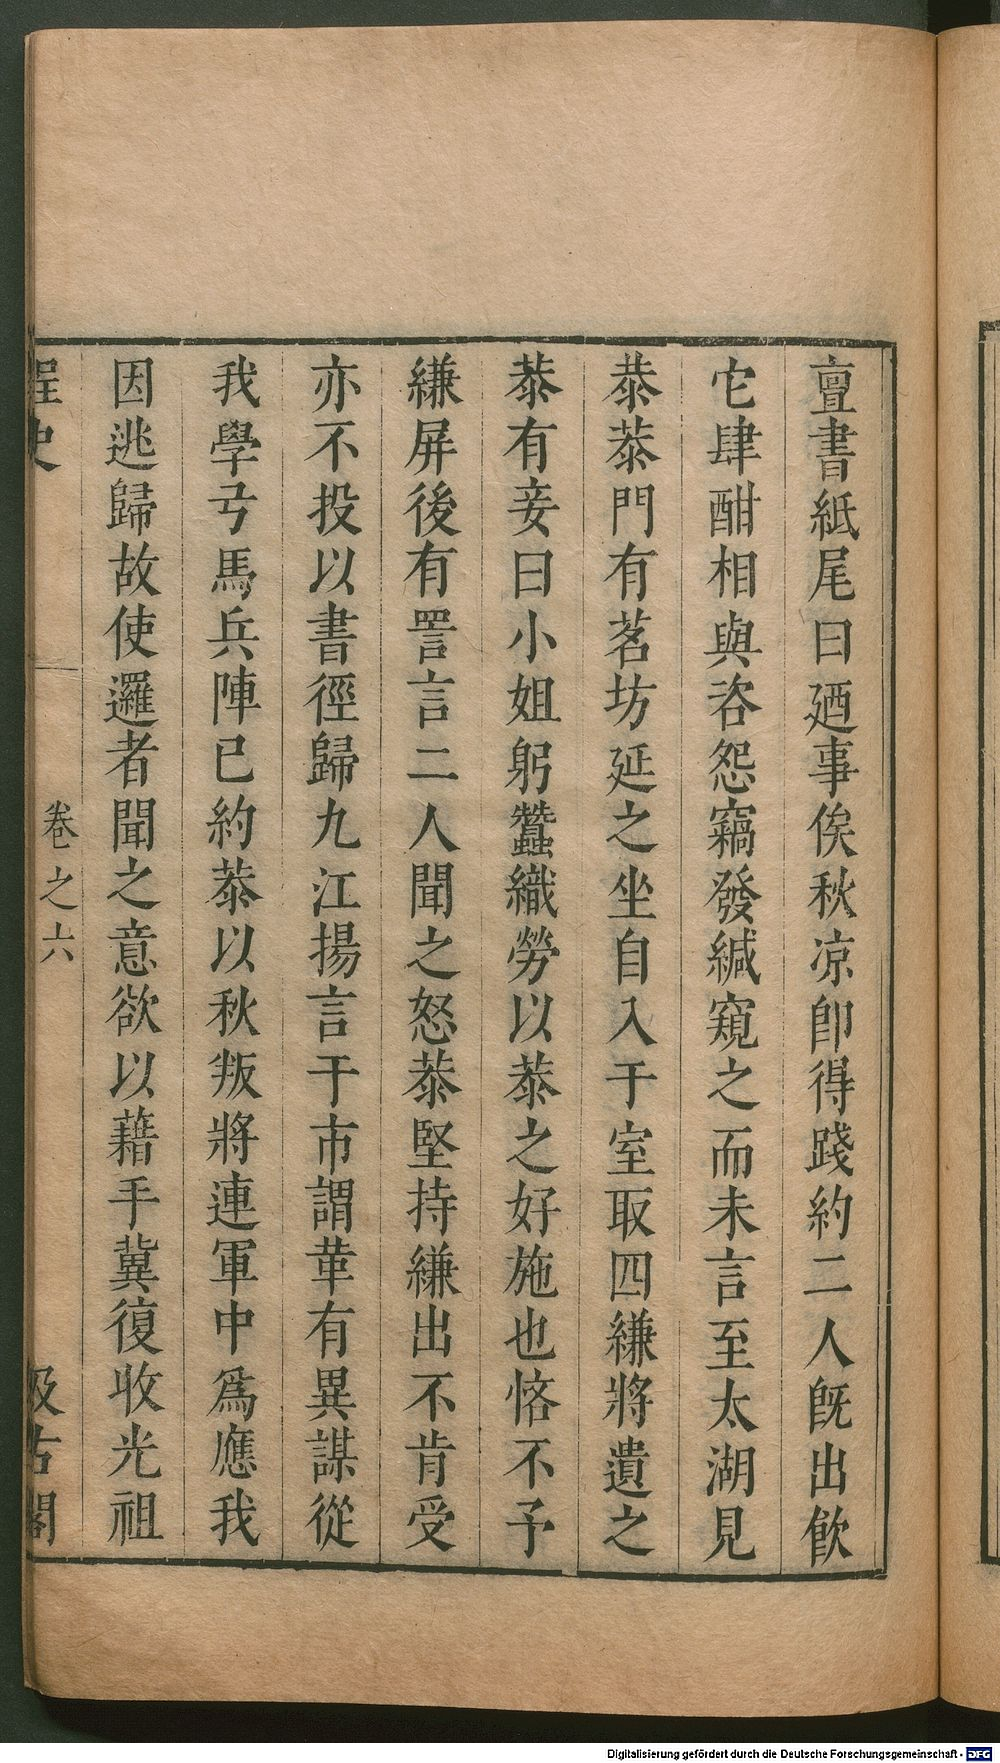 亶書紙尾曰廼事俟秋凉卽得踐約二人旣出飮
它肆酣相與咨怨竊發緘窺之而未言至太湖見
恭恭門有茗坊延之坐自入于室取四縑將遺之
恭有妾曰小姐躬蠶織勞以恭之好施也恡不予
縑屏後有詈言二人聞之怒恭堅持縑出不肯受
亦不投以書徑歸九江揚言于市謂革有異謀從
我學弓馬兵陣已約恭以秋叛將連軍中爲應我
因逃歸故使邏者聞之意欲以藉手冀復收光祖
桯史
卷之六
汲古閣
Digitalisierung gefördert durch die Deutsche Forschungsgemeinschaft - DFG